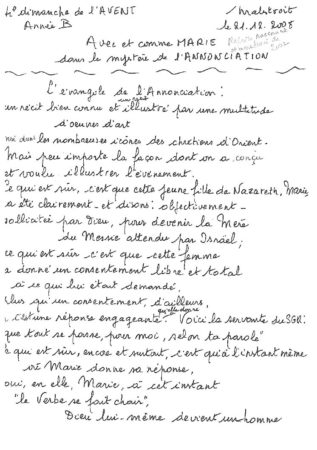 4e dimanche de l'AVENT
Malestroit
Année B
le 21.12.2008
Avec et comme MARIE
dans le mystère de l'ANNONCIATION
L'évangile de l'Annonciation :
un récit bien connu et illustré par une multitude
d'oeuvres d'art
dans les nombreuses icônes des chrétiens d'Orient.
Mais peu importe la façon dont on a conçu
et voulu illustrer l'événement.
Ce qui est sûr, c'est que cette jeune fille de Nazareth, Marie,
a été clairement - et disons : objectivement -
sollicitée par Dieu, pour devenir la Mère
du Messie attendu par Israël ;
ce qui est sûr c'est que cette femme
a donné un consentement libre et total
à ce qui lui était demandé,
Plus qu'un consentement, d'ailleurs,
qu'elle donne
c'est une réponse engageante. "Voici la servante du SGR :
que tout se passe, pour moi, selon ta parole"
Ce qui est sûr, encore et surtout, c'est qu'à l'instant même
où Marie donne sa réponse,
oui, en elle, Marie, à cet instant
"le Verbe se fait chair",
Dieu lui-même devient un homme